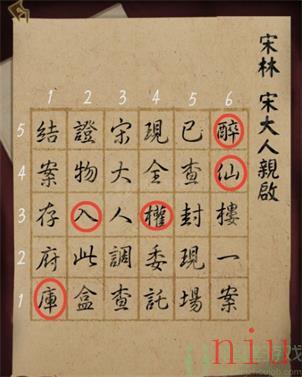 宋林 宋大人親啟
1 2 3 4 5 6
5 結 證 宋 現 已 醉
4 案 物 大 全 查 仙
3 存 入 人 權 封 樓
2 府 此 調 委 現 一
1 庫 盒 查 託 場 案
niu